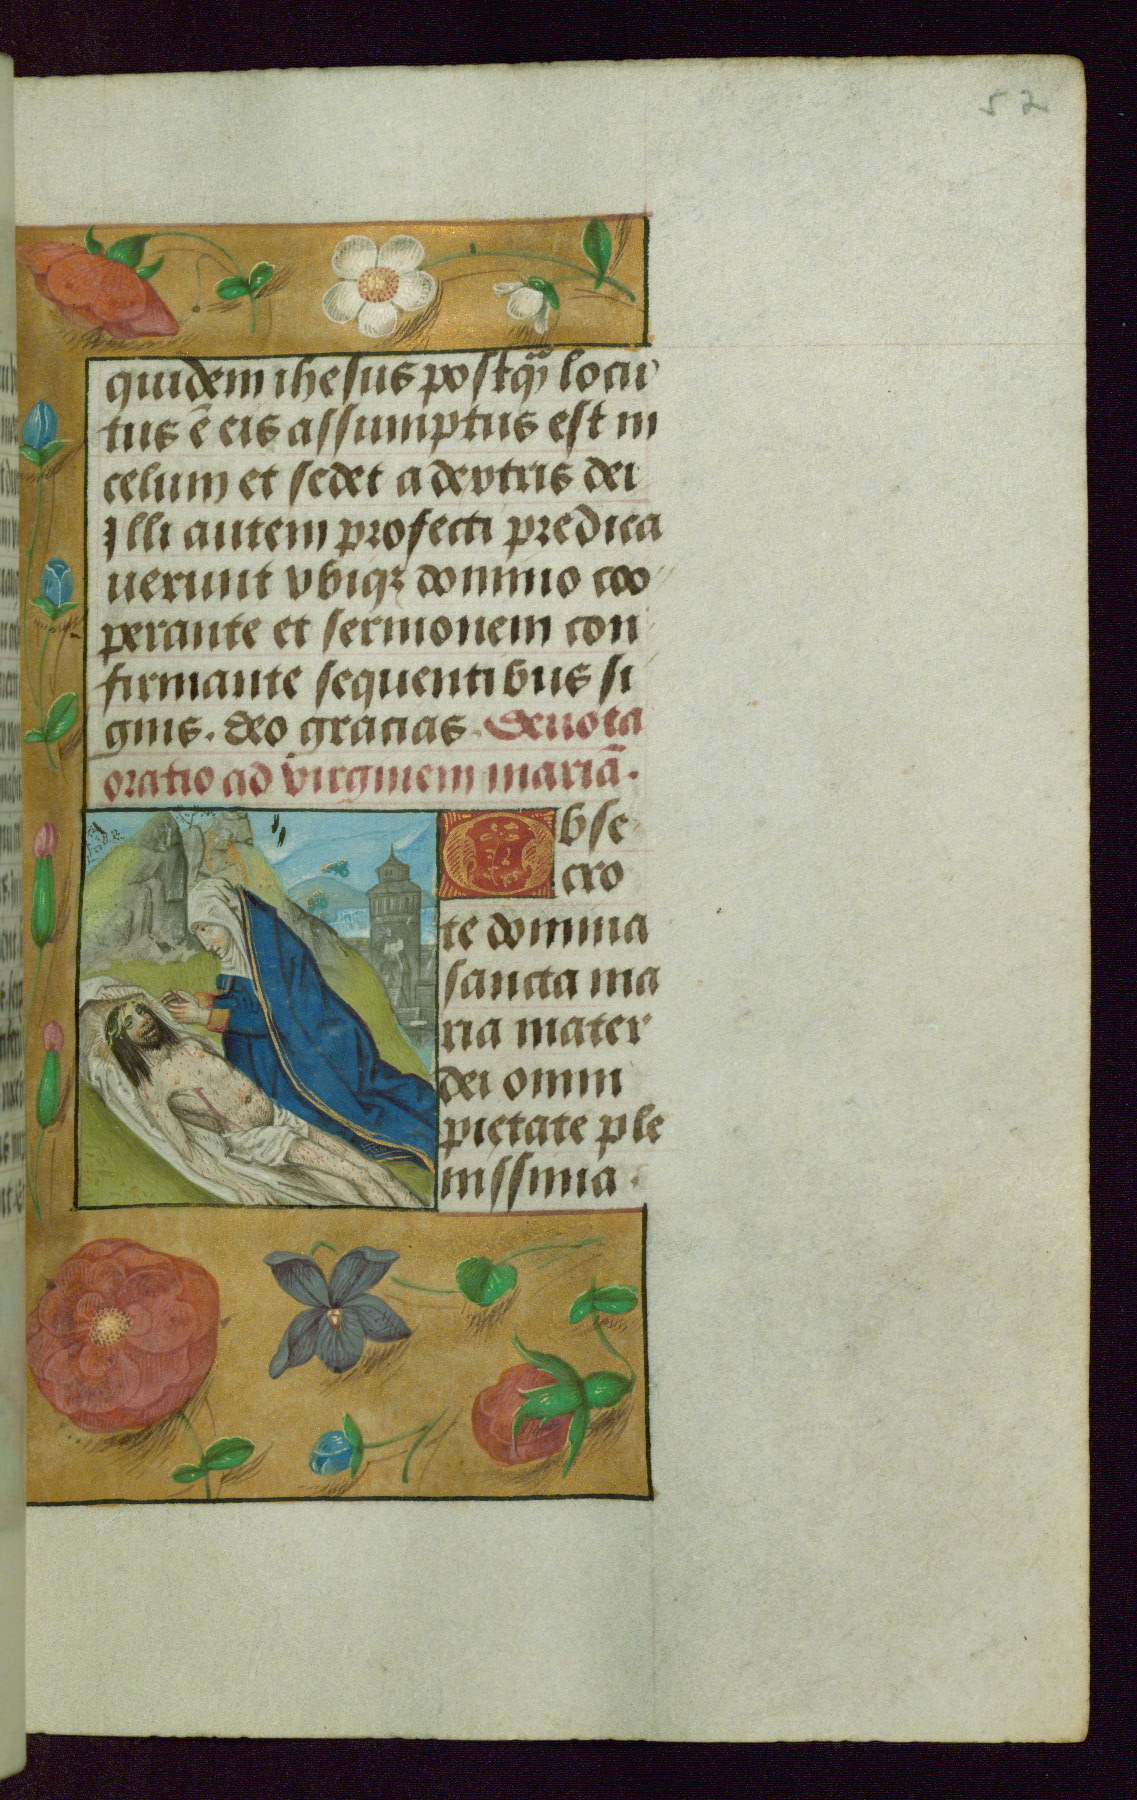 52
quidem ihesus postq̃ locu
tus ē eis assumptus est in
celum et sedet a dextris dei
Illi autem profecti predica
uerunt vbiqꝫ domino coo
perante et sermonem con
firmante sequentibus si
gnis. deo gracias. Deuota
oratio ad virginem mariā.
Obse
cro
te domina
sancta ma
ria mater
dei omni
pietate ple
nissima.